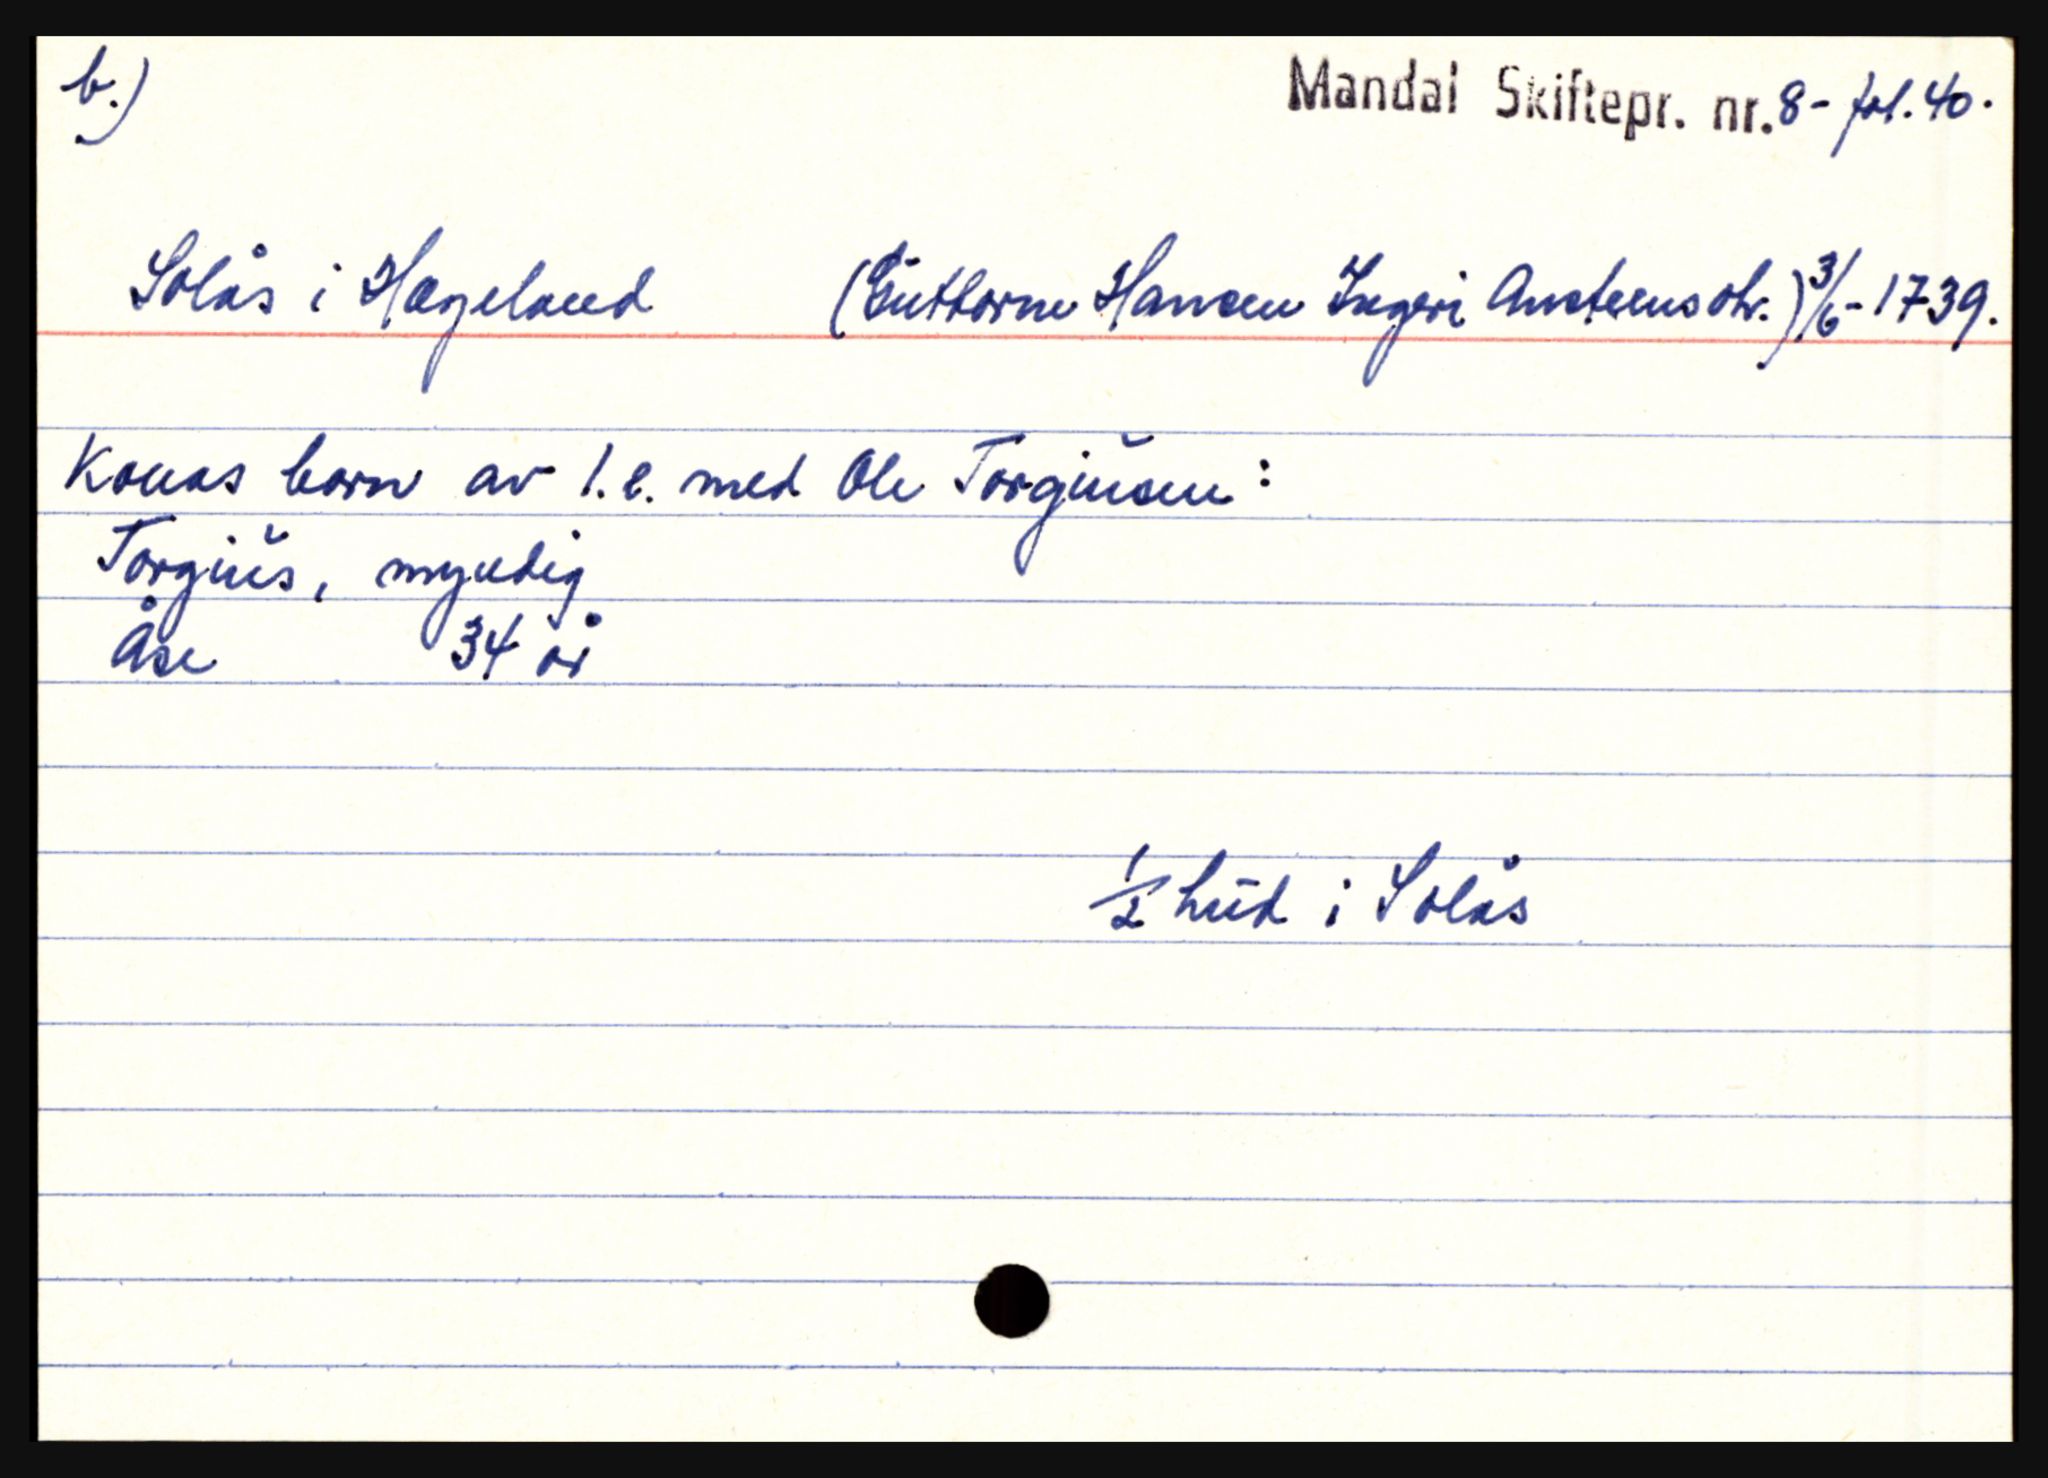 b.)
Mandal Skiftepr. nr. 8 - fol. 40.
Solås i Hægeland (Guttorm Hansen Ingeri Anstensdtr.) 3/6 - 1739.
Konas born av 1. e. med Ole Torgiusen:
Torgius, myndig
Åse 34 år
1/2 hud i Solås